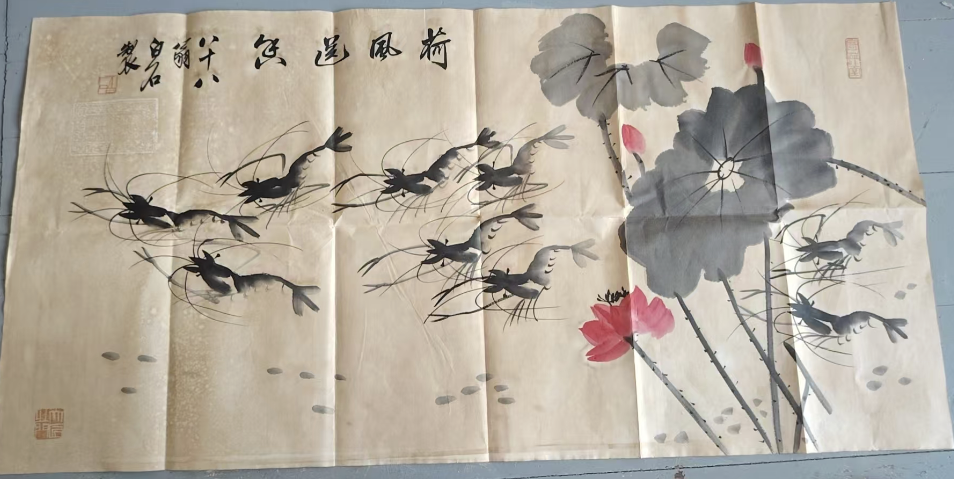 荷風送香
八十八
翁
白石
製